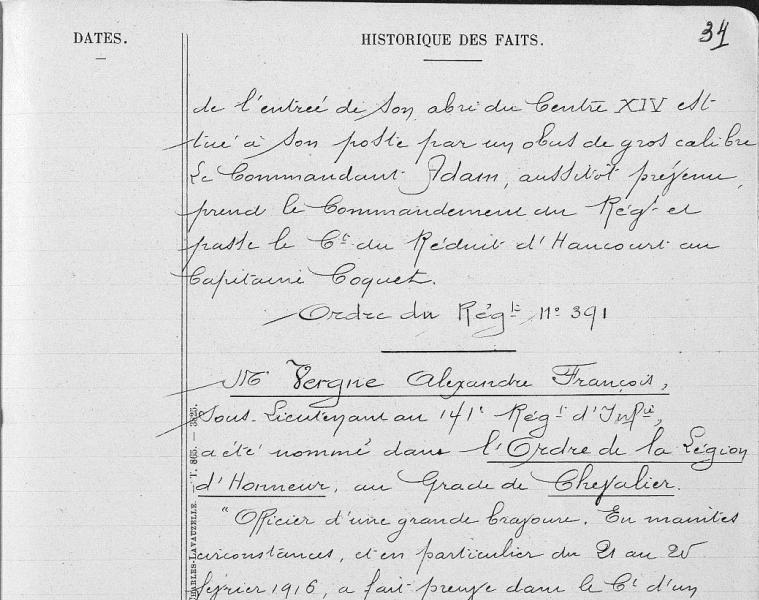 DATES.
HISTORIQUE DES FAITS.
34
de l'entrée de son abri du Centre XIV est
tué à son poste par un obus de gros calibre
Le Commandant Adam, aussitôt prévenu,
prend le Commandement du Régt et
passe le Ct du Réduit d'Haucourt au
Capitaine Coquet.
Ordre du Régt n° 391
Mr Vergne Alexandre François,
Sous-Lieutenant au 141e Régt d'Infie,
a été nommé dans l'Ordre de la Légion
d'Honneur, au Grade de Chevalier.
"Officier d'une grande bravoure. En maintes
circonstances, et en particulier du 21 au 25
février 1916, a fait preuve dans le Ct d'un
CHARLES-LAVAUZELLE. — T. 865. — 3825.